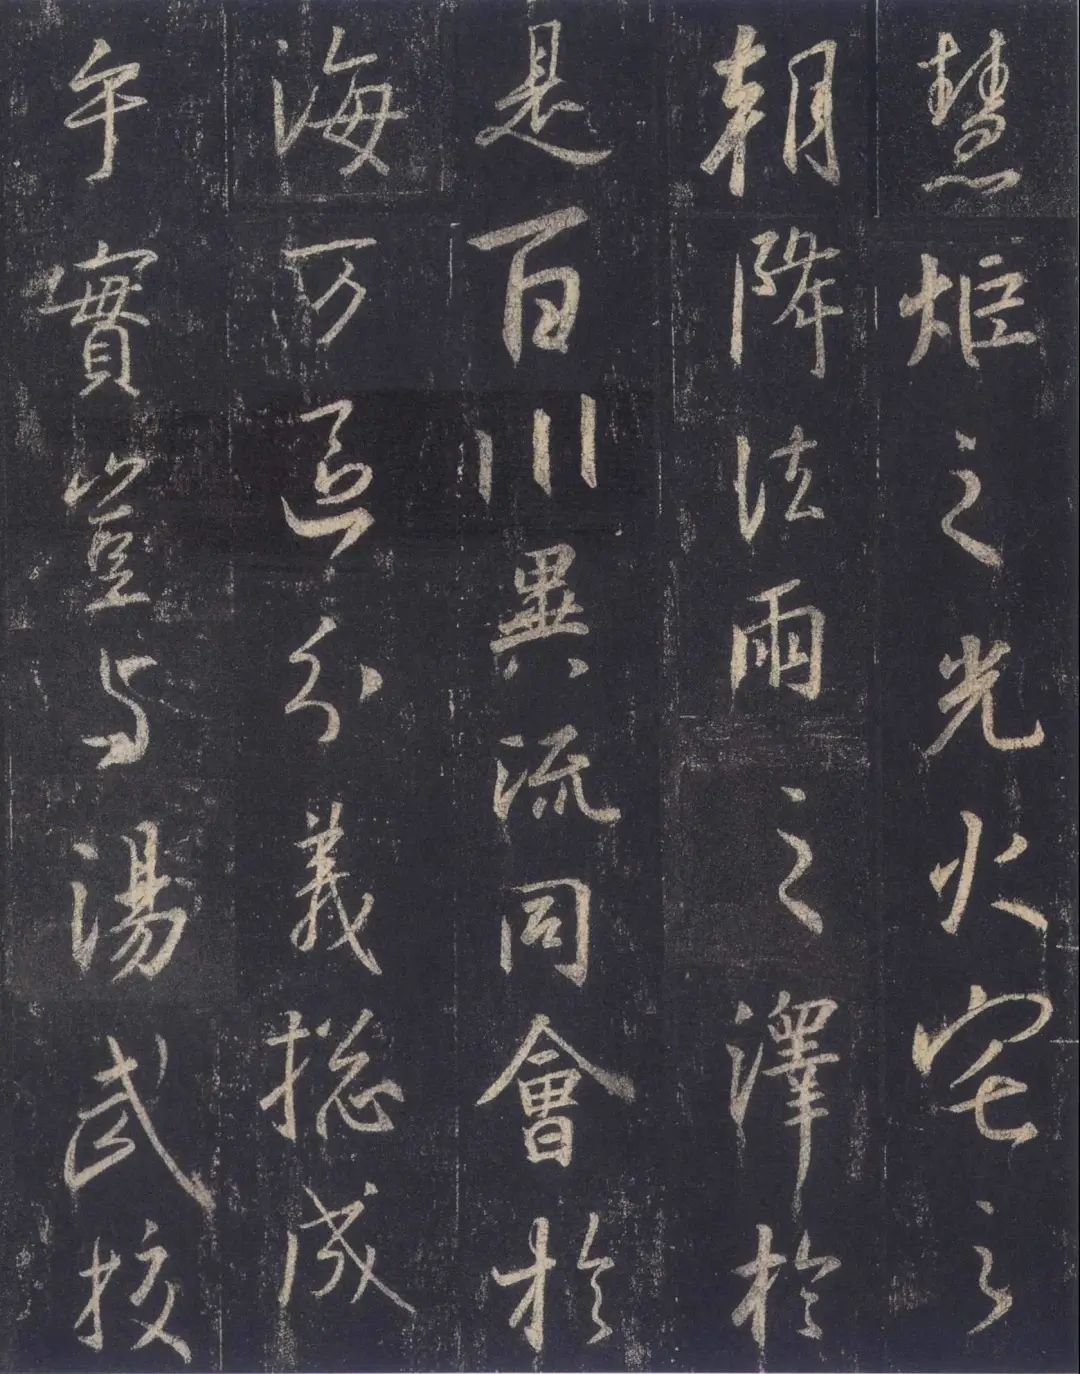 慧炬之光火宅之
朝降法雨之澤於
是百川異流同會於
海万區分義揔成
乎實豈与湯武校